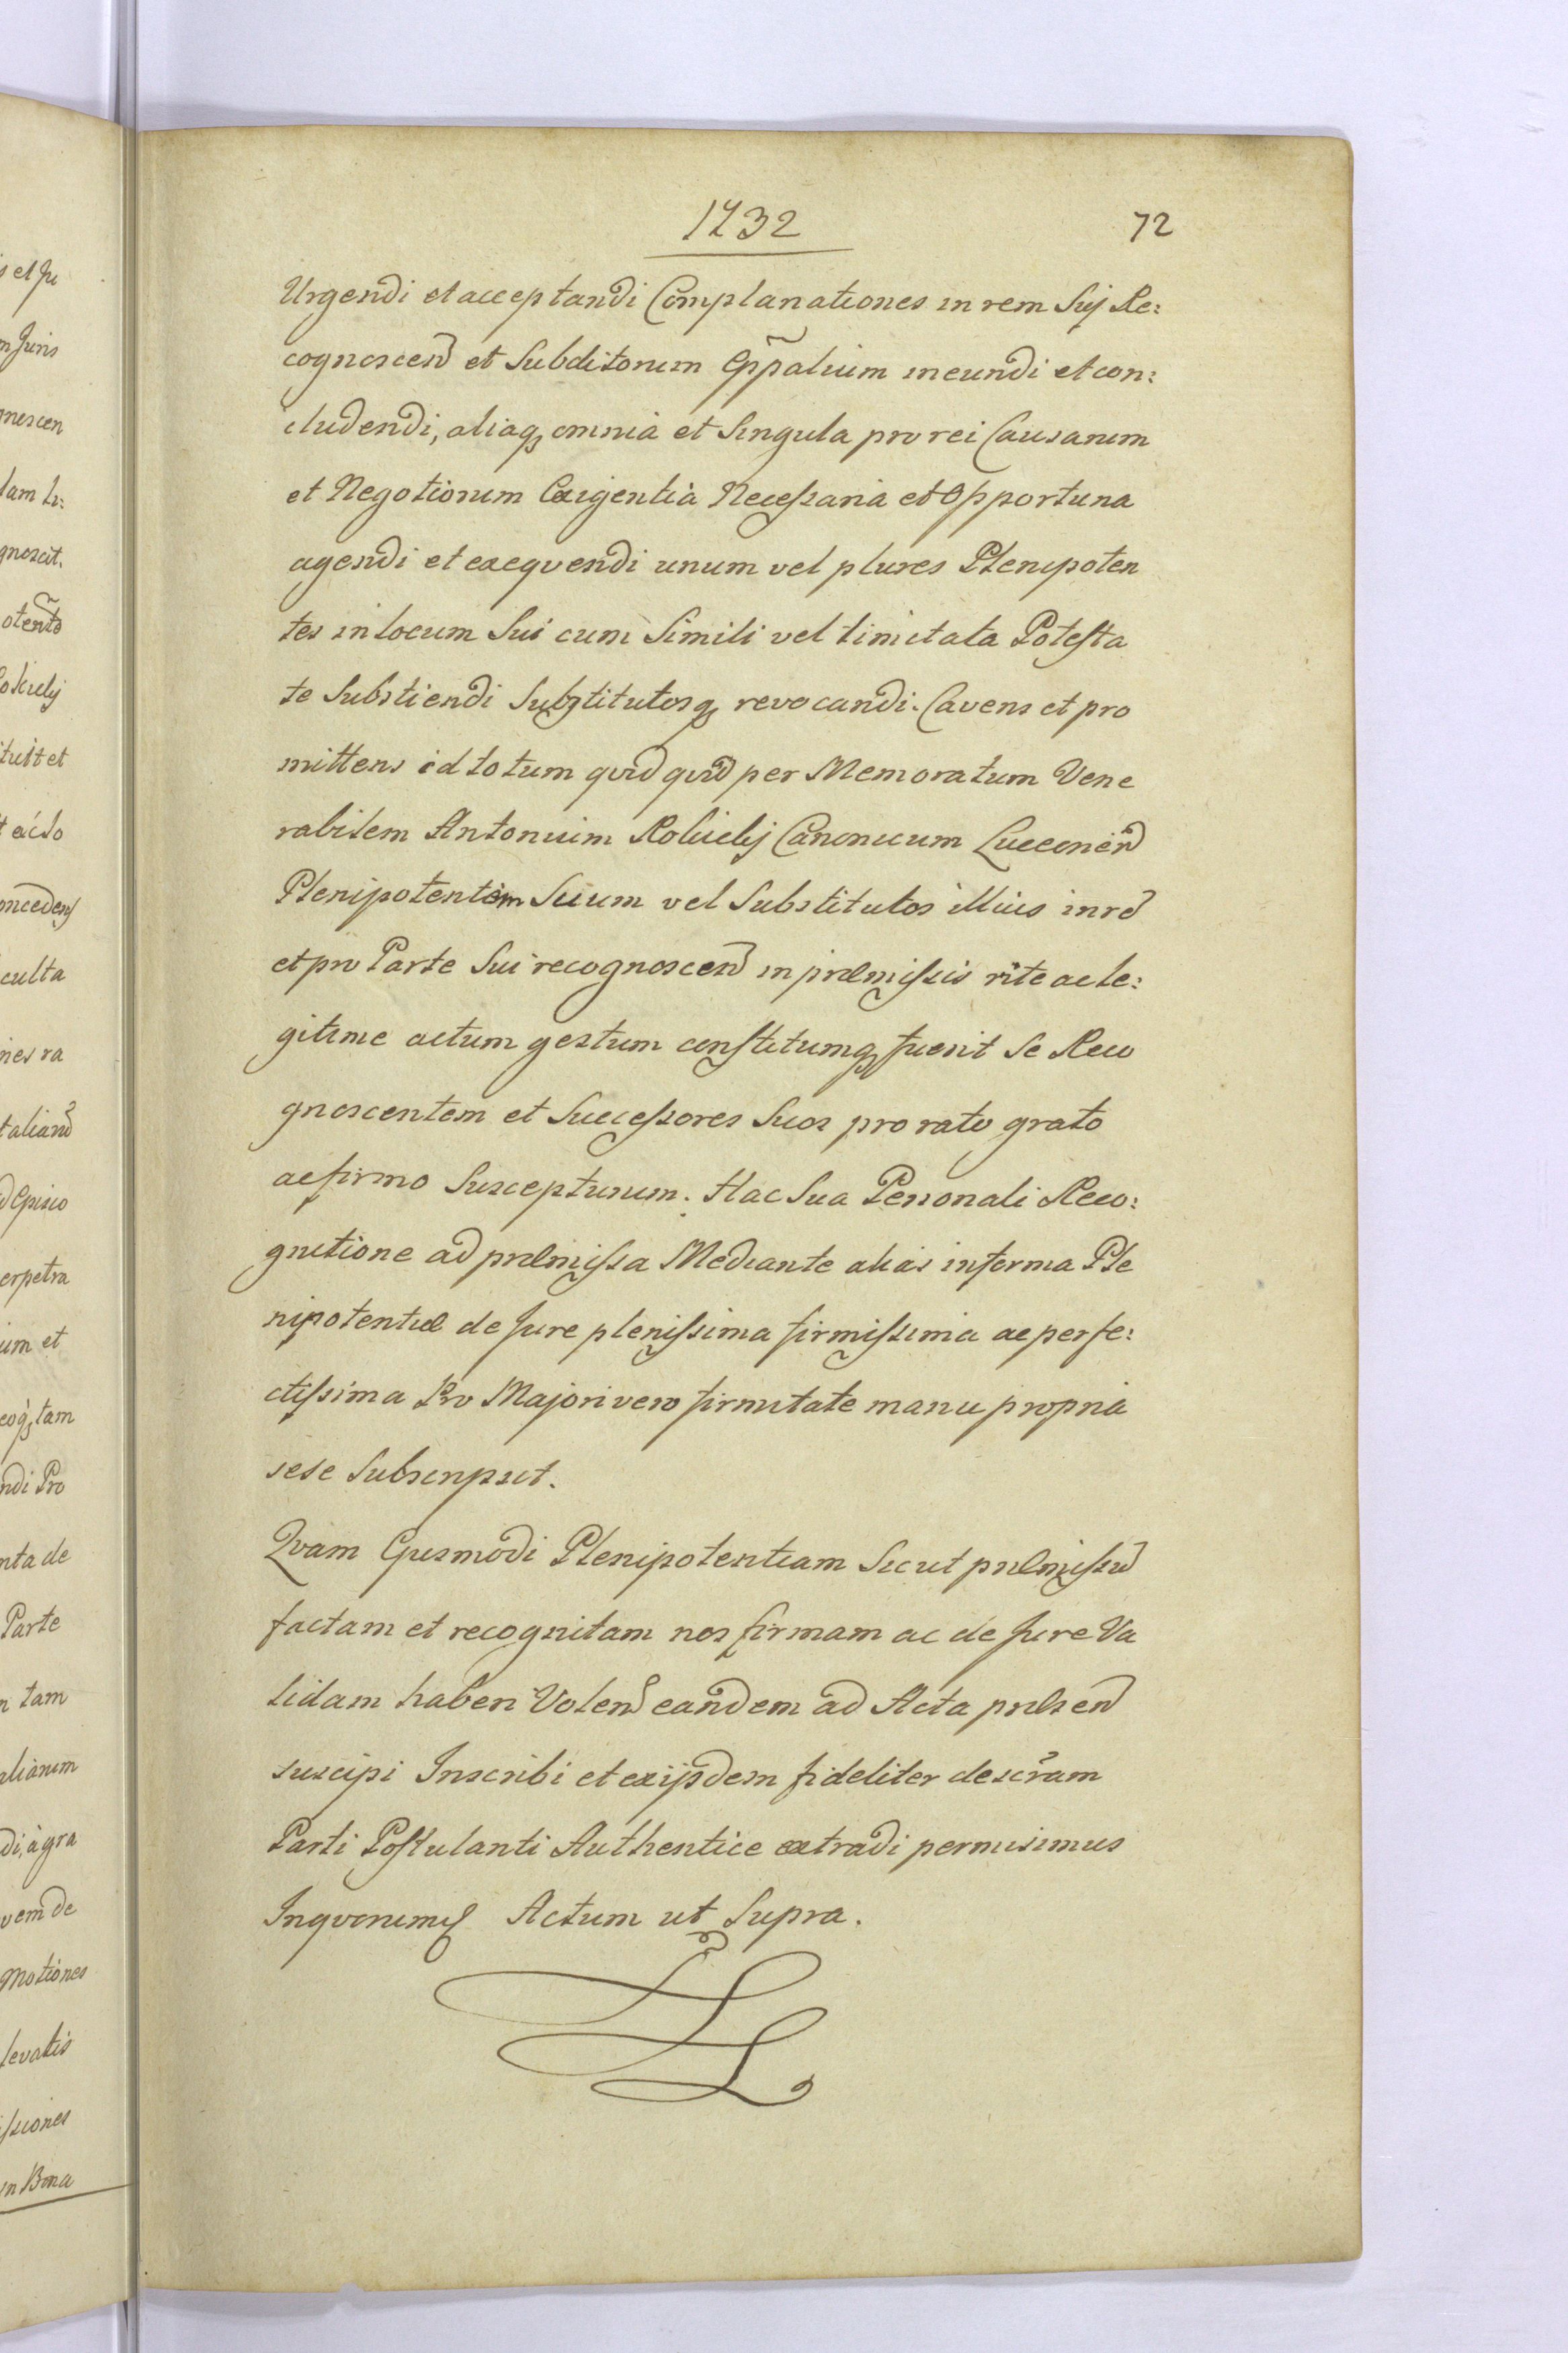 1732
72
Urgendi et acceptandi Complanationes in rem Suj Re:
cognoscen̄ et Subditorum Epp̄alium ineundi et con:
cludendi, aliaq₃ omnia et Singula pro rei Causarum
et Negotiorum Exigentia Necessaria et Opportuna
agendi et exeqvendi unum vel plures Plenipoten
tes in locum Sui cum Simili vel limitata Potesta
te Substiendi Substitutosq₃ revocandi. Cavens et pro
mittens id totum qvid qvid per Memoratum Vene
rabilem Antonium Rokickj Canonicum Lucconen̄
Plenipotentem Suum vel Substitutos illius in rē
et pro Parte Sui recognoscen̄ in præmissis rite ac le:
gitime actum gestum constitumq₃ fuerit Se Reco
gnoscentem et Successores Suos pro rato grato
ac firmo Suscepturum. Hac Sua Personali Reco:
gnitione ad præmissa Mediante alias in forma Ple
nipotentiæ de Jure plenissima firmissima ac perfe:
ctissima Pro Majori vero firmitate manu propria
sese Subscripsit.
Qvam Ejusmodi Plenipotentiam Sic ut præmissū
factam et recognitam nos firmam ac de Jure Va
lidam haberi Volen̄ eandem ad Acta præsen̄
suscipi Inscribi et ex ijsdem fideliter descr̄am
Parti Postulanti Authentice extradi permisimus
Actum ut Supra.